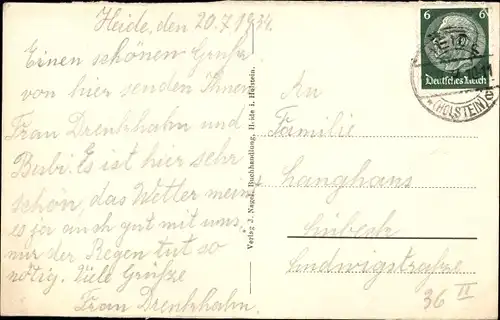 Heide, den 20.7.1934.
Einen schönen Gruße
von hier senden Ihnen
Frau Drenkhahn und
Bubi. Es ist hier sehr
schön, das Wetter meint
es ja auch gut mit uns,
nur der Regen tut so
nötig. Viele Gruße
Frau Drenkhahn.
Verlag J. Nagel, Buchhandlung, Heide i. Holstein.
6 6
Deutsches Reich
HEIDE
(HOLSTEIN)
An
Familie
Langhans
Lübeck
Ludwigstraße
36 II